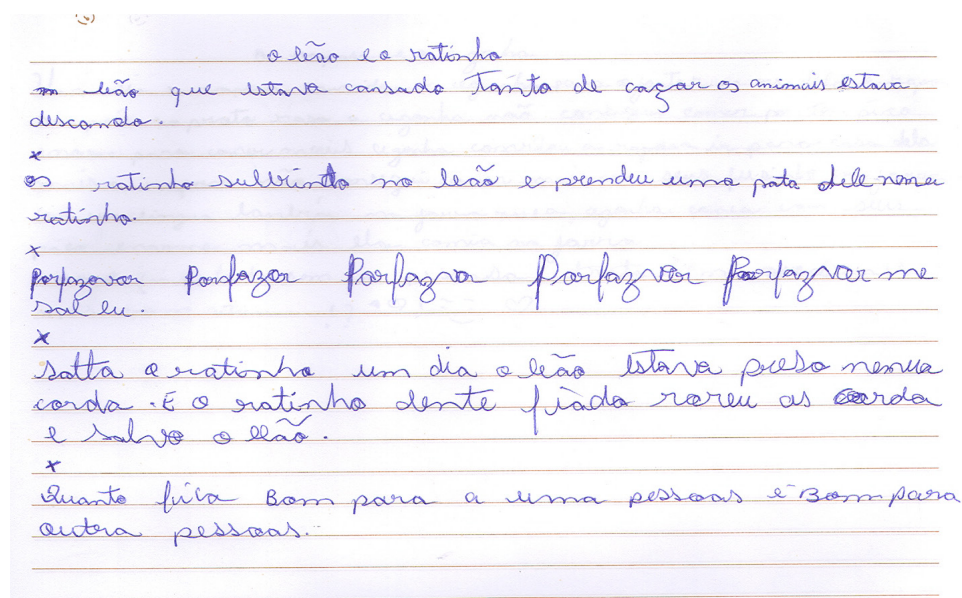 o leão e o ratinho
um leão que estava cansado Tanto de caçar os animais estava
descando.
x
os ratinho sulbrindo no leão e prendeu uma pata dele nema
ratinho.
x
Porfazovar Porfazer Porfazva Porfazvor Porfazver me
sal eu.
x
Solta o ratinho um dia o leão estava preso nemua
corda. E o ratinho dente fiado roreu as corda
e salvo o leão.
x
Quanto fica Bom para a uma pessoas e Bom para
outra pessoas.